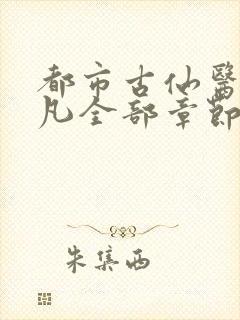 都市古仙醫
凡全部章節
朱集西